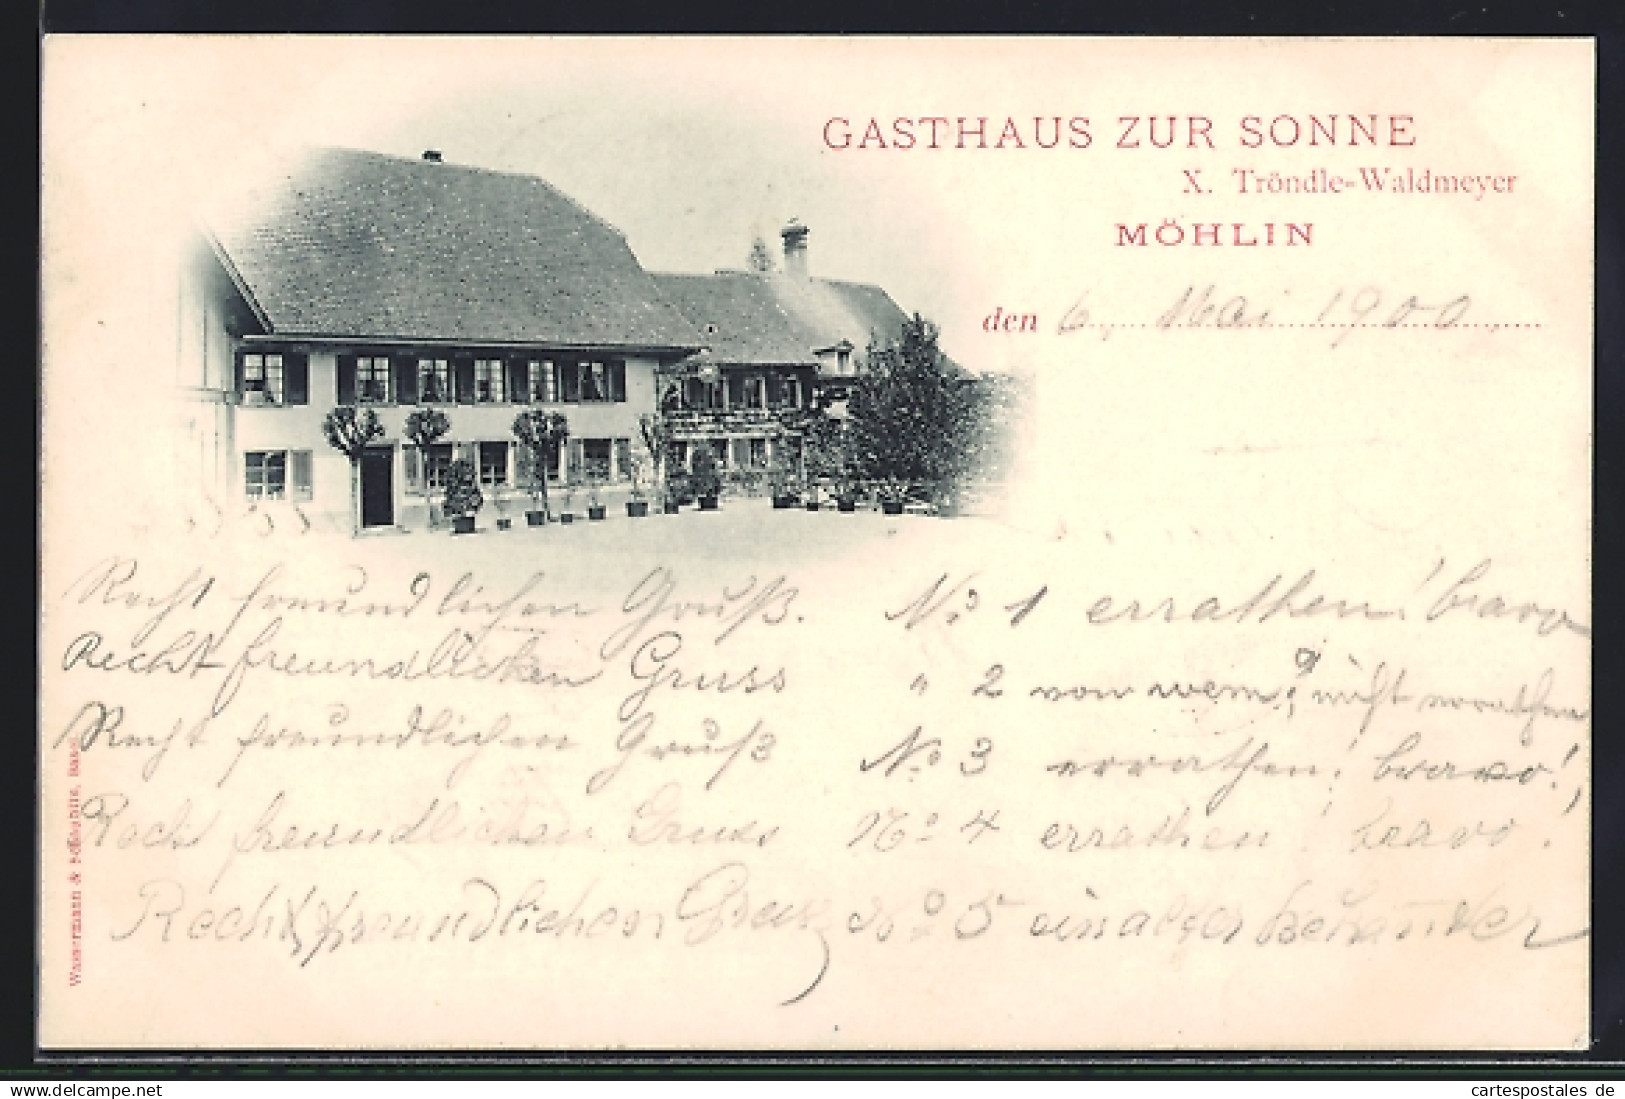 GASTHAUS ZUR SONNE
X. Tröndle-Waldmeyer
MÖHLIN
den 6. Mai 1900
Recht freundlichen Gruß. No 1 errathen! bravo
Recht freundlichen Gruss " 2 von wem? nicht errathen
Recht freundlichen Gruß No 3 errathen! bravo!
Recht freundlichen Gruss No 4 errathen! bravo!
Recht freundlichen Gruss No 5 ein alter Bekannter
Wassermann & Basel
cartespostales de